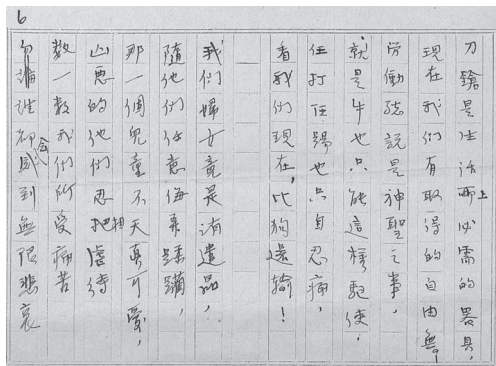 6
刀鎗是生活上所必需的器具,
現在我們有取得的自由無,
勞働總說是神聖之事,
就是牛也只能這樣驅使,
任打任踢也只自忍痛,
看我們現在,比狗還輸!
我們婦女竟是消遣品,
隨他們任意侮弄蹂躪,
那一個兒童不天真可愛,
凶惡的他們忍相虐待
數一數我們所受痛苦
勿論誰都會感到無限悲哀